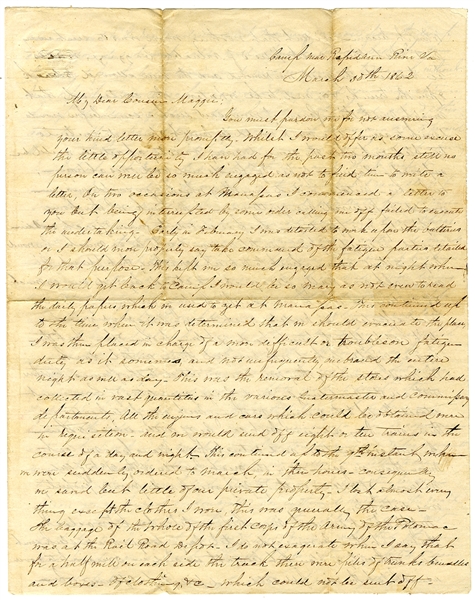 Camp near Rapidan River Va
March 30th 1862
My Dear Cousin Maggie:
You must pardon me for not answering
your kind letter more promptly. Whilst I would offer as some excuse
the little opportunity I have had for the past two months still no
person can well be so much engaged as not to find time to write a
letter. On two occasions at Manassas I commenced a letter to
you but being interrupted by some order calling me off failed to
the undertaking. Early in February I was detailed to make a power batteries
or I should more properly say take command of the fatigue parties detailed
for that purpose. This kept me so much engaged that at night when
I would get back to Camp I would be so weary as not even to read
the daily papers which we used to get at Manassas. This continued up
to the time when it was determined that we should evacuate the place
I was then placed in charge of a more difficult or troublesome fatigue
duty as it sometimes and not unfrequently embraced the entire
night as well as day. This was the removal of the stores which had
collected in vast quantities in the various Quartermaster and Commissary
departments. All the engines and cars which could be obtained were
in requisition and we would send off eight or ten trains in the
course of a day and night. This continued up to the 9th instant when
we were suddenly ordered to March, in three hours - consequently
we saved but little of our private property. I lost almost every
thing except the clothes I wore, this was generally the case -
The baggage of the whole of the first Corps of the Army of the Potomac
was at the Rail Road Depot. I do not exaggerate when I say that
for a half mile on each side the track there were piles of trunks bundles
and boxes of clothing &c - which could not be sent off -